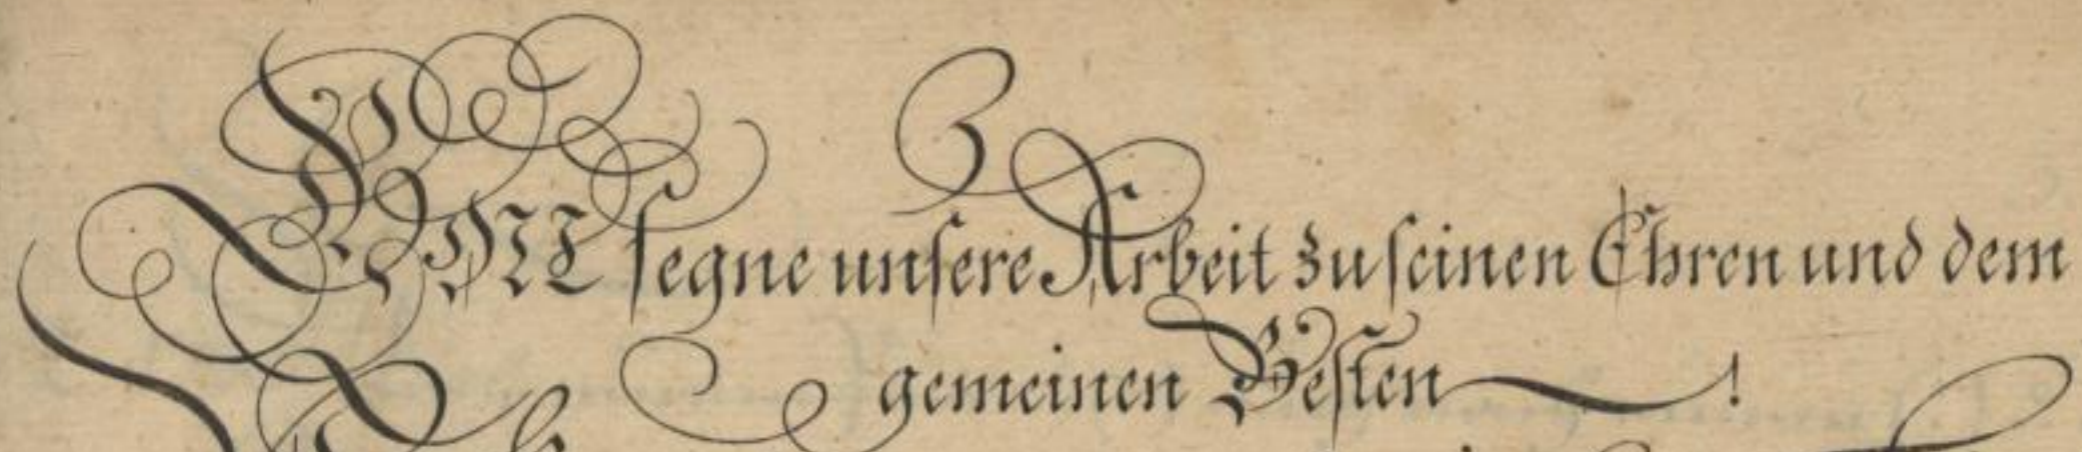 GOTT segne unsere Arbeit zu seinen Ehren und dem
gemeinen Besten!